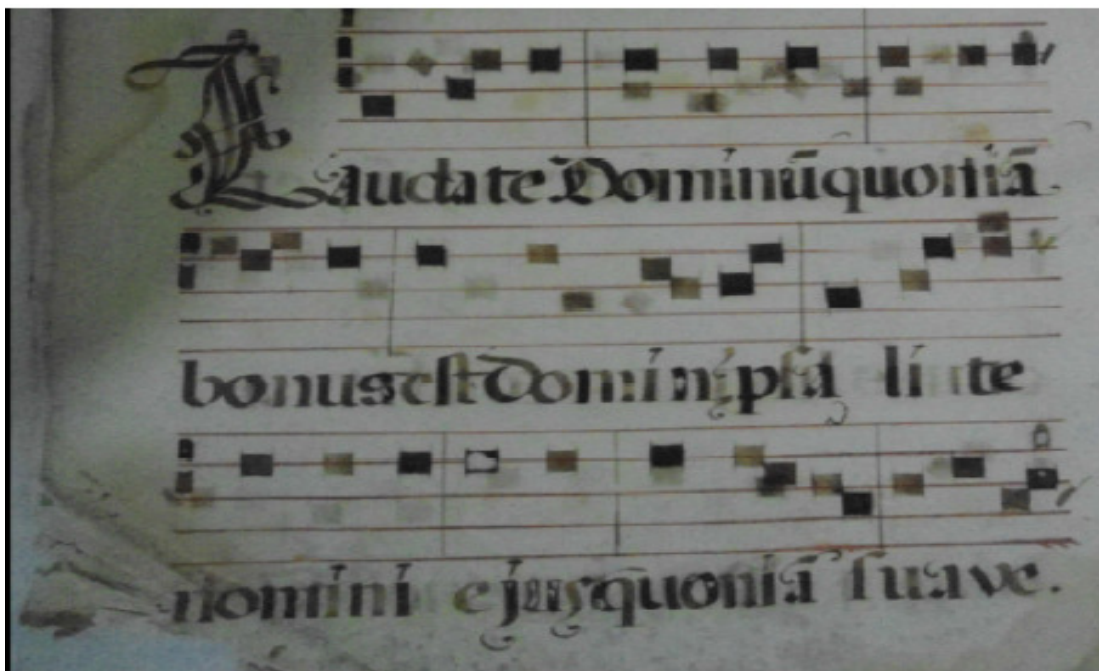 Laudate Dominū quoniā
bonus est Domin, psa li te
nomini ejus, quoniā suave.